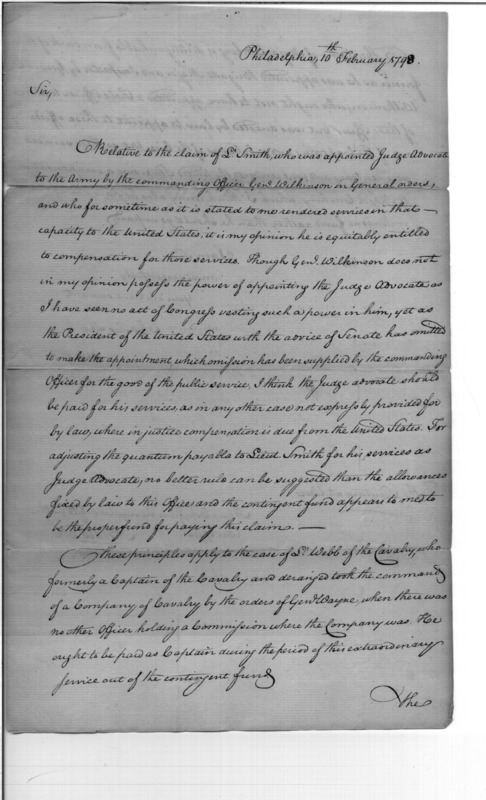 Philadelphia, 10th February 1798.
Sir,
Relative to the claim of Lt. Smith, who was appointed Judge Advocate
to the Army by the commanding Officer Genl. Wilkinson in General orders,
and who for sometime as it is stated to me rendered services in that —
capacity to the United States, it is my opinion he is equitably entitled
to compensation for those services. Though Genl. Wilkinson does not
in my opinion possess the power of appointing the Judge Advocate as
I have seen no act of Congress vesting such a power in him, yet as
the President of the United States with the advice of Senate has omitted
to make the appointment, which omission has been supplied by the commanding
Officer for the good of the public service, I think the Judge advocate should
be paid for his services, as in any other case not expressly provided for
by law, where in justice compensation is due from the United States. For
adjusting the quantum payable to Lieut. Smith for his services as
Judge Advocate, no better rule can be suggested than the allowances
fixed by law to this Office and the contingent fund appears to me to
be the proper fund for paying this claim. —
These principles apply to the case of Lt. Webb of the Cavalry, who
formerly a Captain of the Cavalry and deranged took the command
of a Company of Cavalry by the orders of Genl. Wayne, when there was
no other Officer holding a Commission where the Company was. He
ought to be paid as Captain during the period of this extraordinary
service out of the contingent fund
The